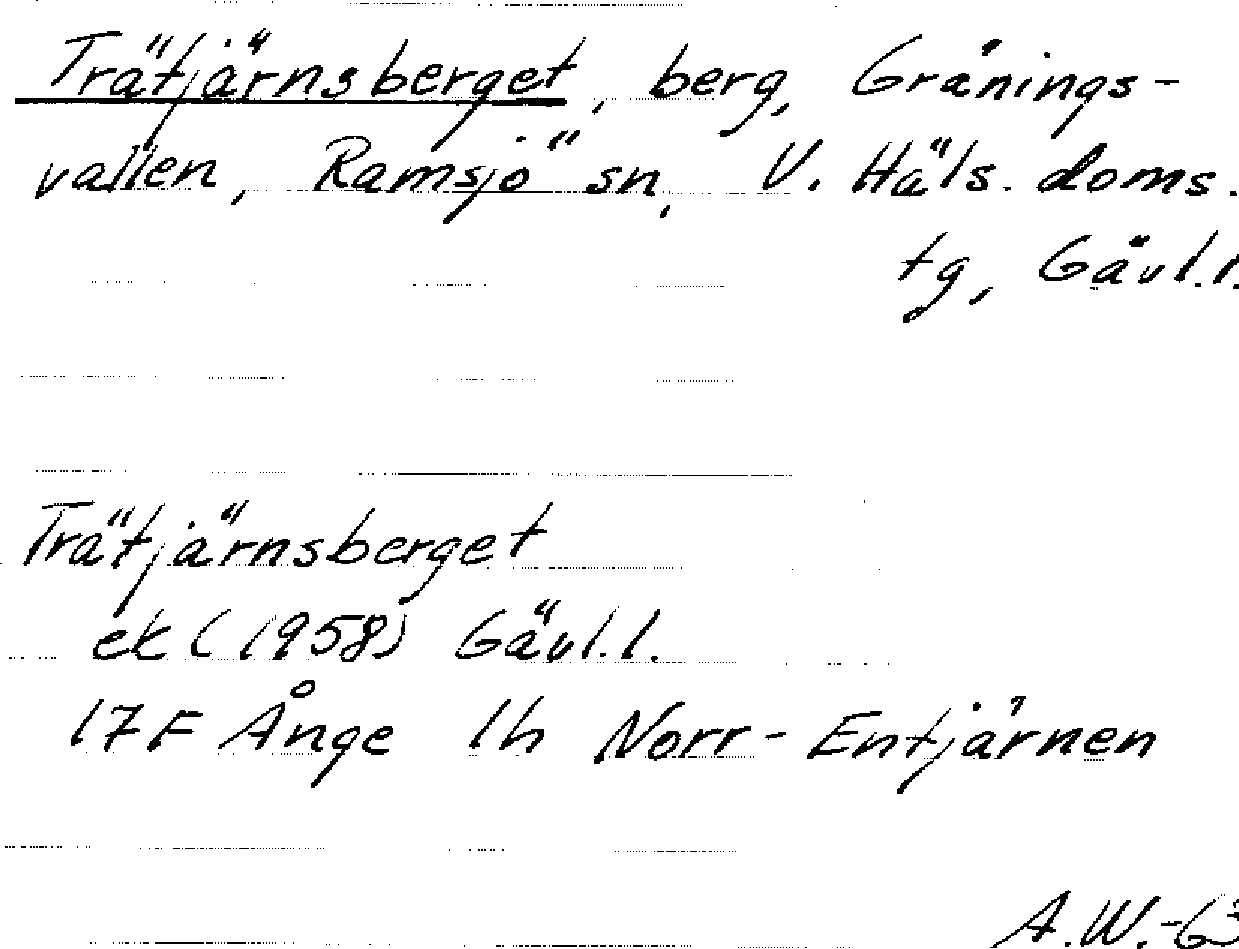 Trätjärnsberget, berg, Gränings-
vallen, Ramsjö sn, V. Häls. doms.
tg, Gävl.l.
Trätjärnsberget
ek (1958) Gävl.l.
17F Ånge 1h Norr-Entjärnen
A.W.-63